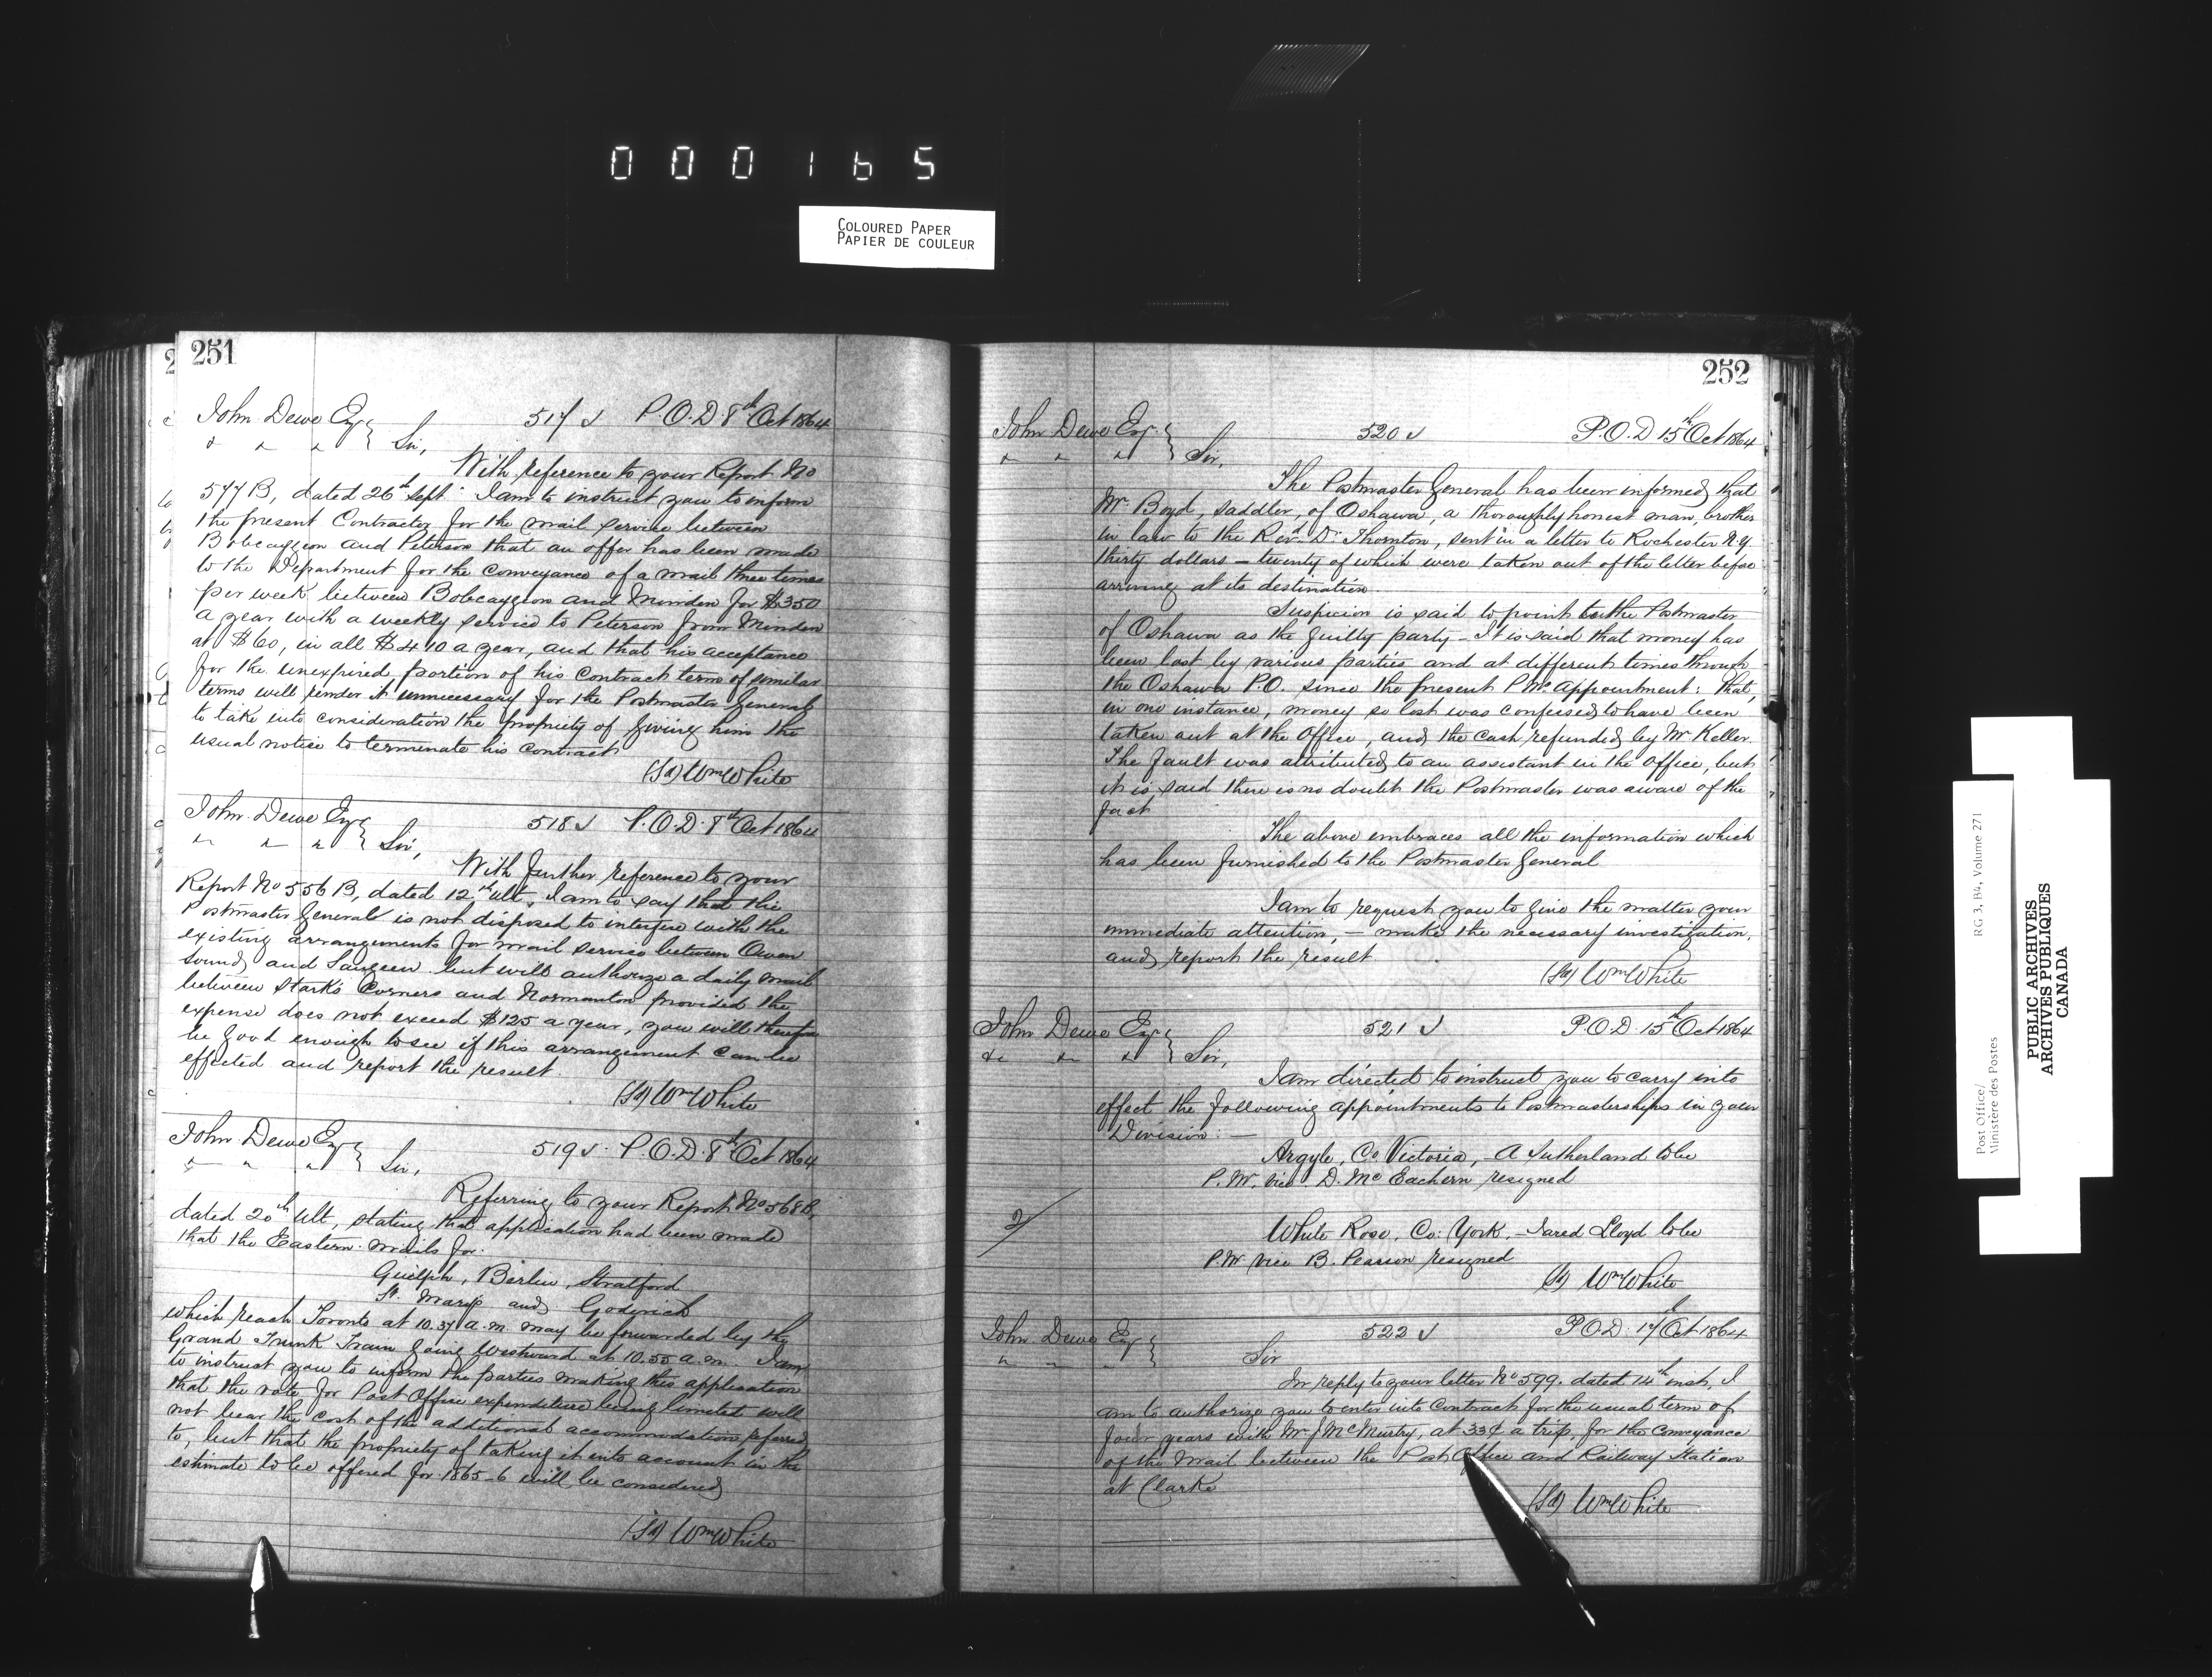 000165
COLOURED PAPER
PAPIER DE COULEUR
251
John Dewe Esq
517 J P.O.D. 8th Oct 1864
" " " Sir,
With reference to your Report No
577 B, dated 26th Sept. I am to instruct you to inform
the present Contractor for the mail service between
Bobcaygeon and Peterson that an offer has been made
to the Department for the conveyance of a mail three times
per week between Bobcaygeon and Minden for $350
a year with a weekly service to Peterson from Minden
at $60, in all $410 a year, and that his acceptance
for the unexpired portion of his Contract term of similar
terms will render it unnecessary for the Postmaster General
to take into consideration the propriety of giving him the
usual notice to terminate his contract
(Sd) Wm White
John Dewe Esq
518 J P.O.D. 8th Oct 1864
" " " Sir,
With further reference to your
Report No 556 B, dated 12th Ult, I am to say that the
Postmaster General is not disposed to interfere with the
existing arrangements for mail service between Owen
Sound and Saugeen but will authorize a daily mail
between Stark's Corners and Normanton provided the
expense does not exceed $125 a year, you will therefore
be good enough to see if this arrangement can be
effected and report the result.
(Sd) Wm White
John Dewe Esq
519 J. P.O.D. 8th Oct 1864
" " " Sir,
Referring to your Report No 568 B,
dated 20th Ult, stating that application had been made
that the Eastern mails for
Guelph, Berlin, Stratford
St. Marys and Goderich
which reach Toronto at 10.37 a.m. may be forwarded by the
Grand Trunk Train going Westward at 10.55 a.m. I am
to instruct you to inform the parties making this application
that the vote for Post Office expenditure being limited will
not bear the cost of the additional accommodation referred
to, but that the propriety of taking it into account in the
estimate to be offered for 1865-6 will be considered
(Sd) Wm White
252
John Dewe Esq.
520 J P.O.D 15th Oct 1864
" " " Sir,
The Postmaster General has been informed that
Mr. Boyd, Saddler, of Oshawa, a thoroughly honest man, brother
in law to the Revd. Dr. Thornton, sent in a letter to Rochester N.Y.
thirty dollars – twenty of which were taken out of the letter before
arriving at its destination.
Suspicion is said to point to the Postmaster
of Oshawa as the guilty party – It is said that money has
been lost by various parties and at different times through
the Oshawa P.O. since the present P.Ms. appointment: that,
in one instance, money so lost was confessed to have been
taken out at the Office, and the cash refunded by Mr Keller.
The fault was attributed to an assistant in the office, but
it is said there is no doubt the Postmaster was aware of the
fact
The above embraces all the information which
has been furnished to the Postmaster General
I am to request you to give the matter your
immediate attention, – make the necessary investigation,
and report the result.
(Sd) Wm White
John Dewe Esq
521 J P.O.D. 15th Oct 1864
" " " Sir,
I am directed to instruct you to carry into
effect the following appointments to Postmasterships in your
Division: –
Argyle, Co Victoria, – A Sutherland to be
P.M. vice D. McEachern resigned
2/
White Rose, Co: York, – Jared Lloyd to be
P.M vice B. Pearson resigned
(Sd) Wm White
John Dewe Esq
522 J P.O.D. 17 Oct 1864
" " Sir
In reply to your letter No 599. dated 14th inst, I
am to authorize you to enter into Contract for the usual term of
four years with Mr J McMurtry, at 33¢ a trip, for the Conveyance
of the Mail between the Post Office and Railway Station
at Clarke
(Sd) Wm White
Post Office/
Ministère des Postes
RG 3, B4, Volume 271
PUBLIC ARCHIVES
ARCHIVES PUBLIQUES
CANADA